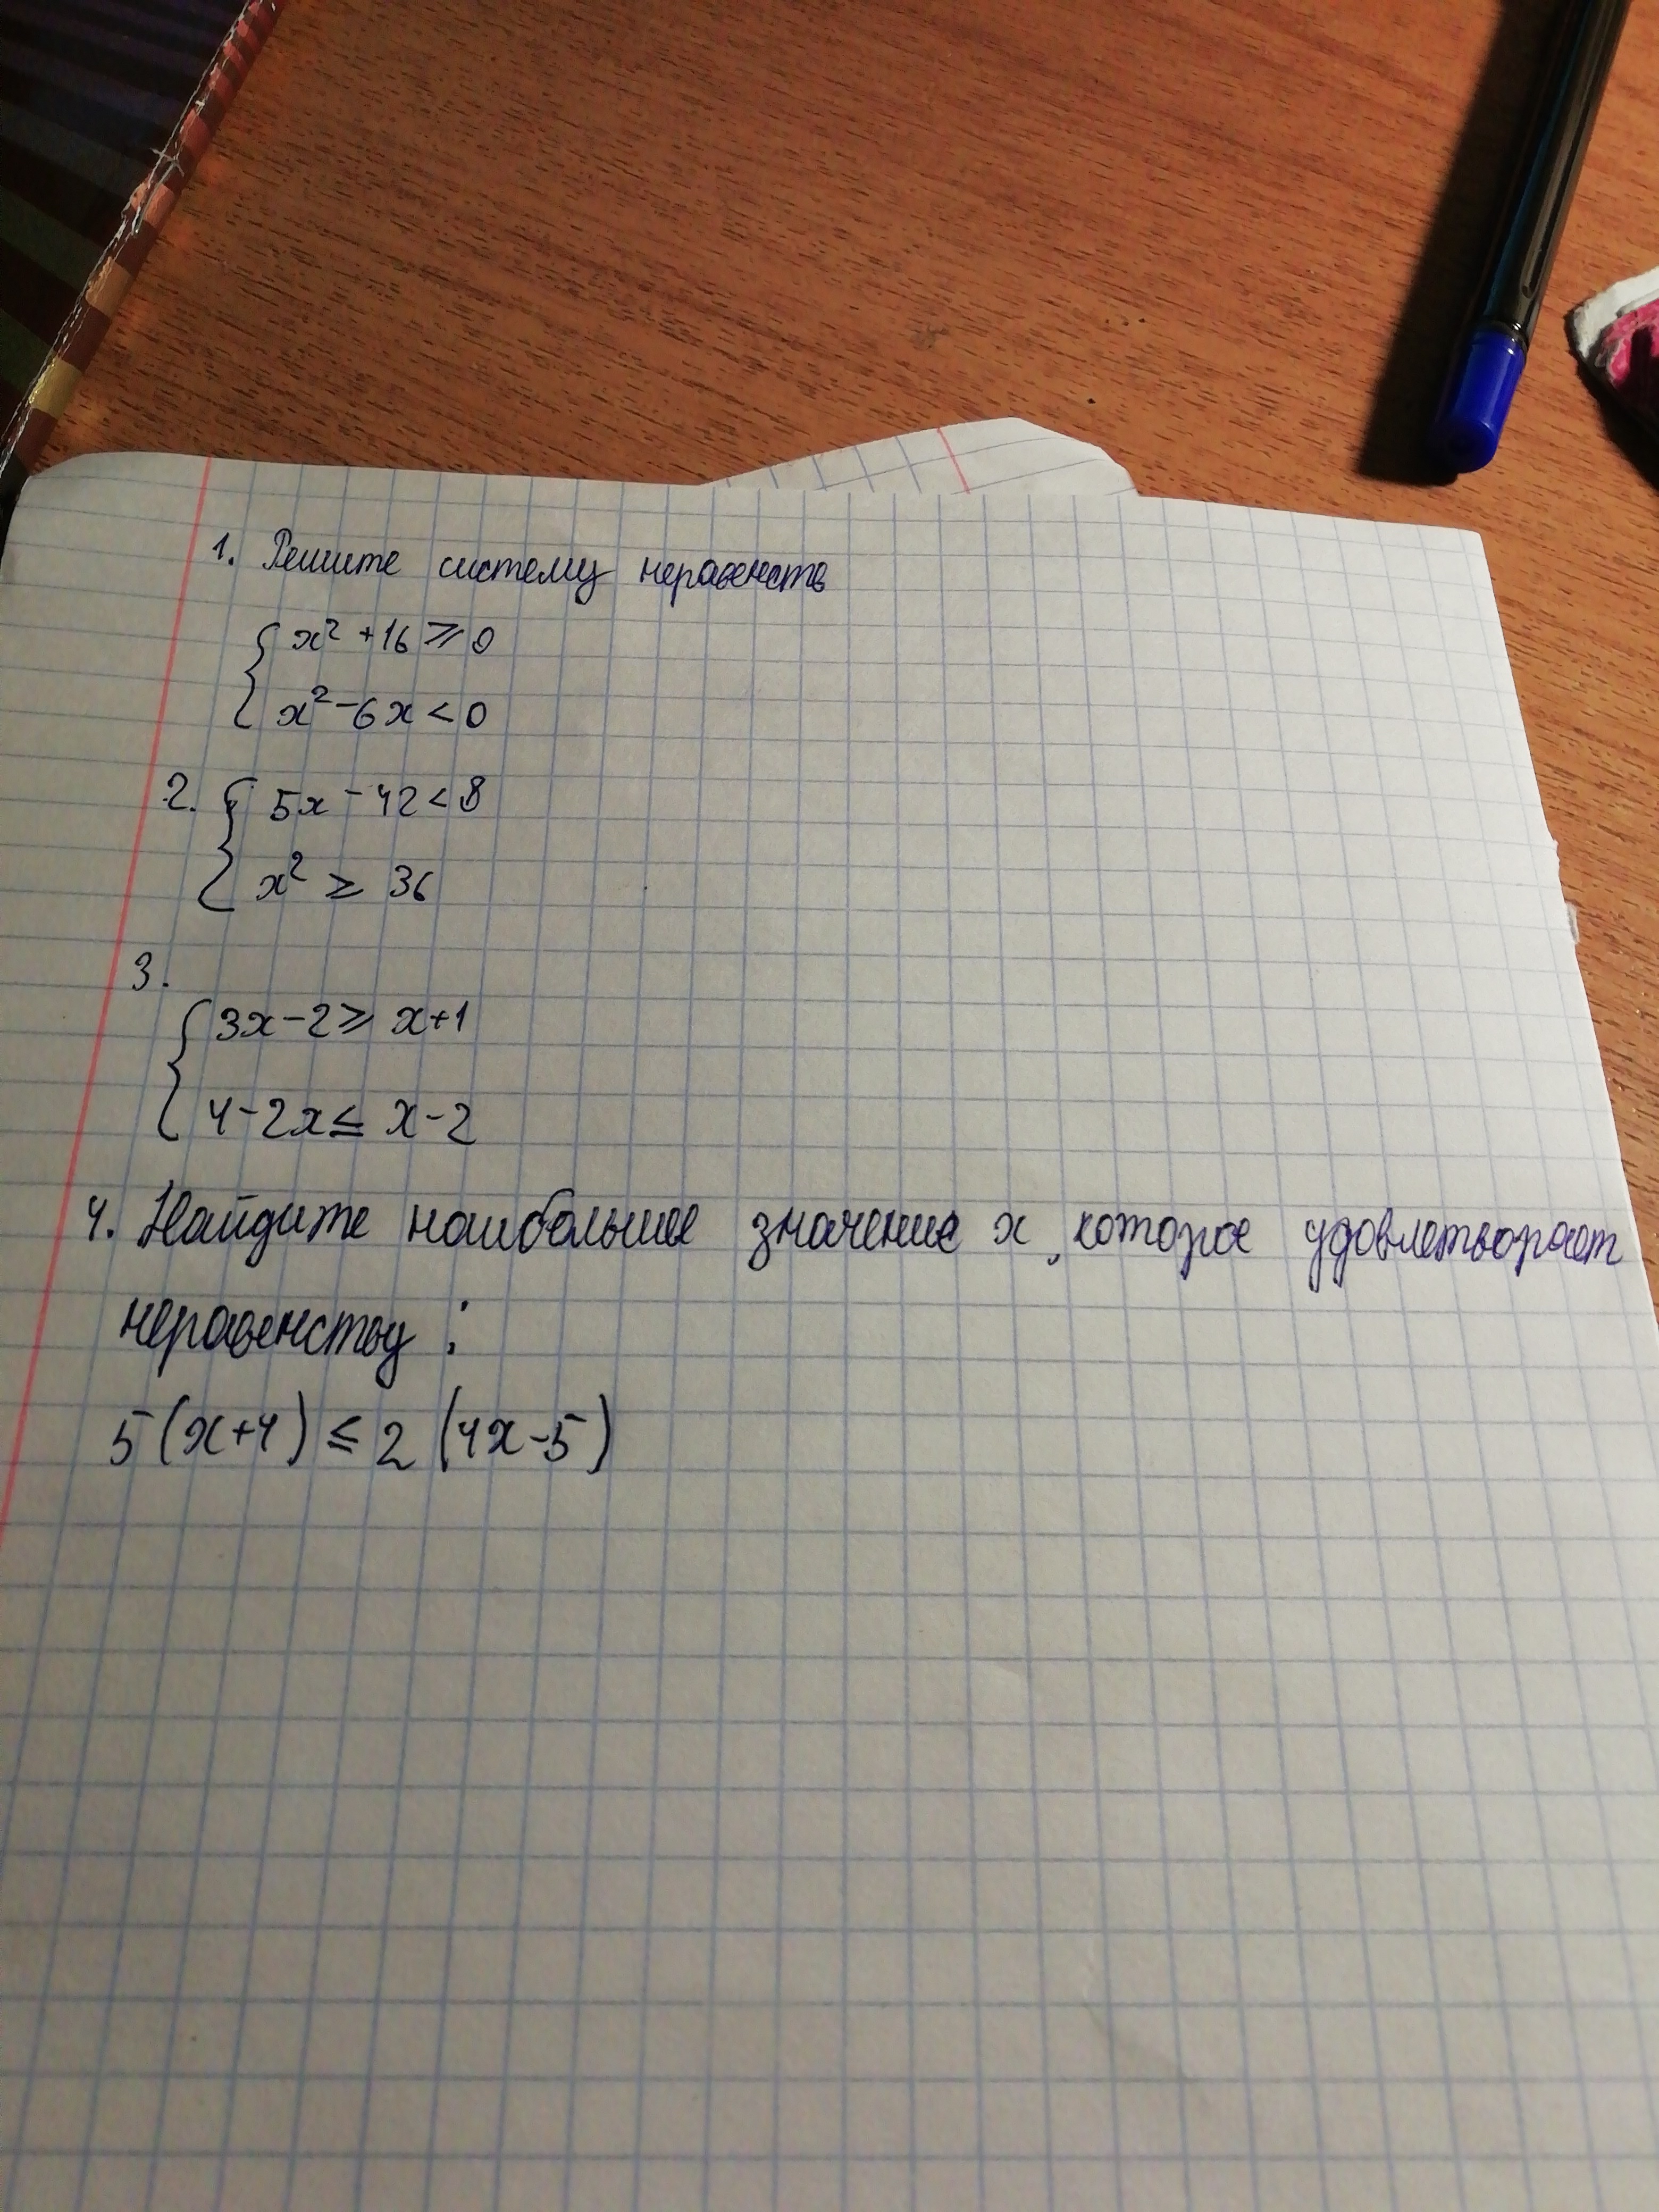 1. Решите систему неравенств
{ x² + 16 ⩾ 0
x² - 6x < 0
2. { 5x - 42 < 8
x² ≥ 36
3.
{ 3x - 2 ⩾ x + 1
4 - 2x ≤ x - 2
4. Найдите наибольшее значение x, которое удовлетворяет
неравенству :
5(x+4) ≤ 2 (4x-5)